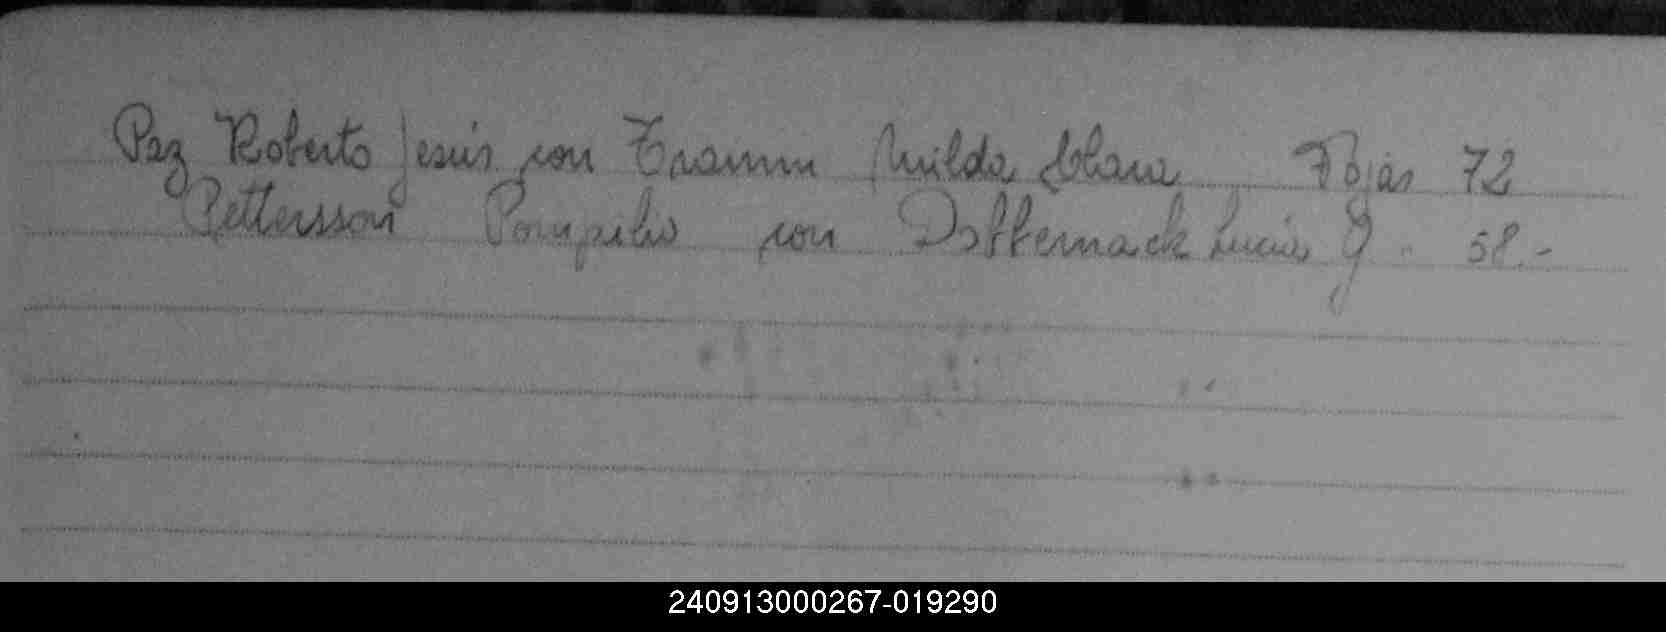 Paz Roberto Jesús con Tramm Milda Clara Fojas 72
Pettersson Pompilio con Lucia G. 58.-
240913000267-019290